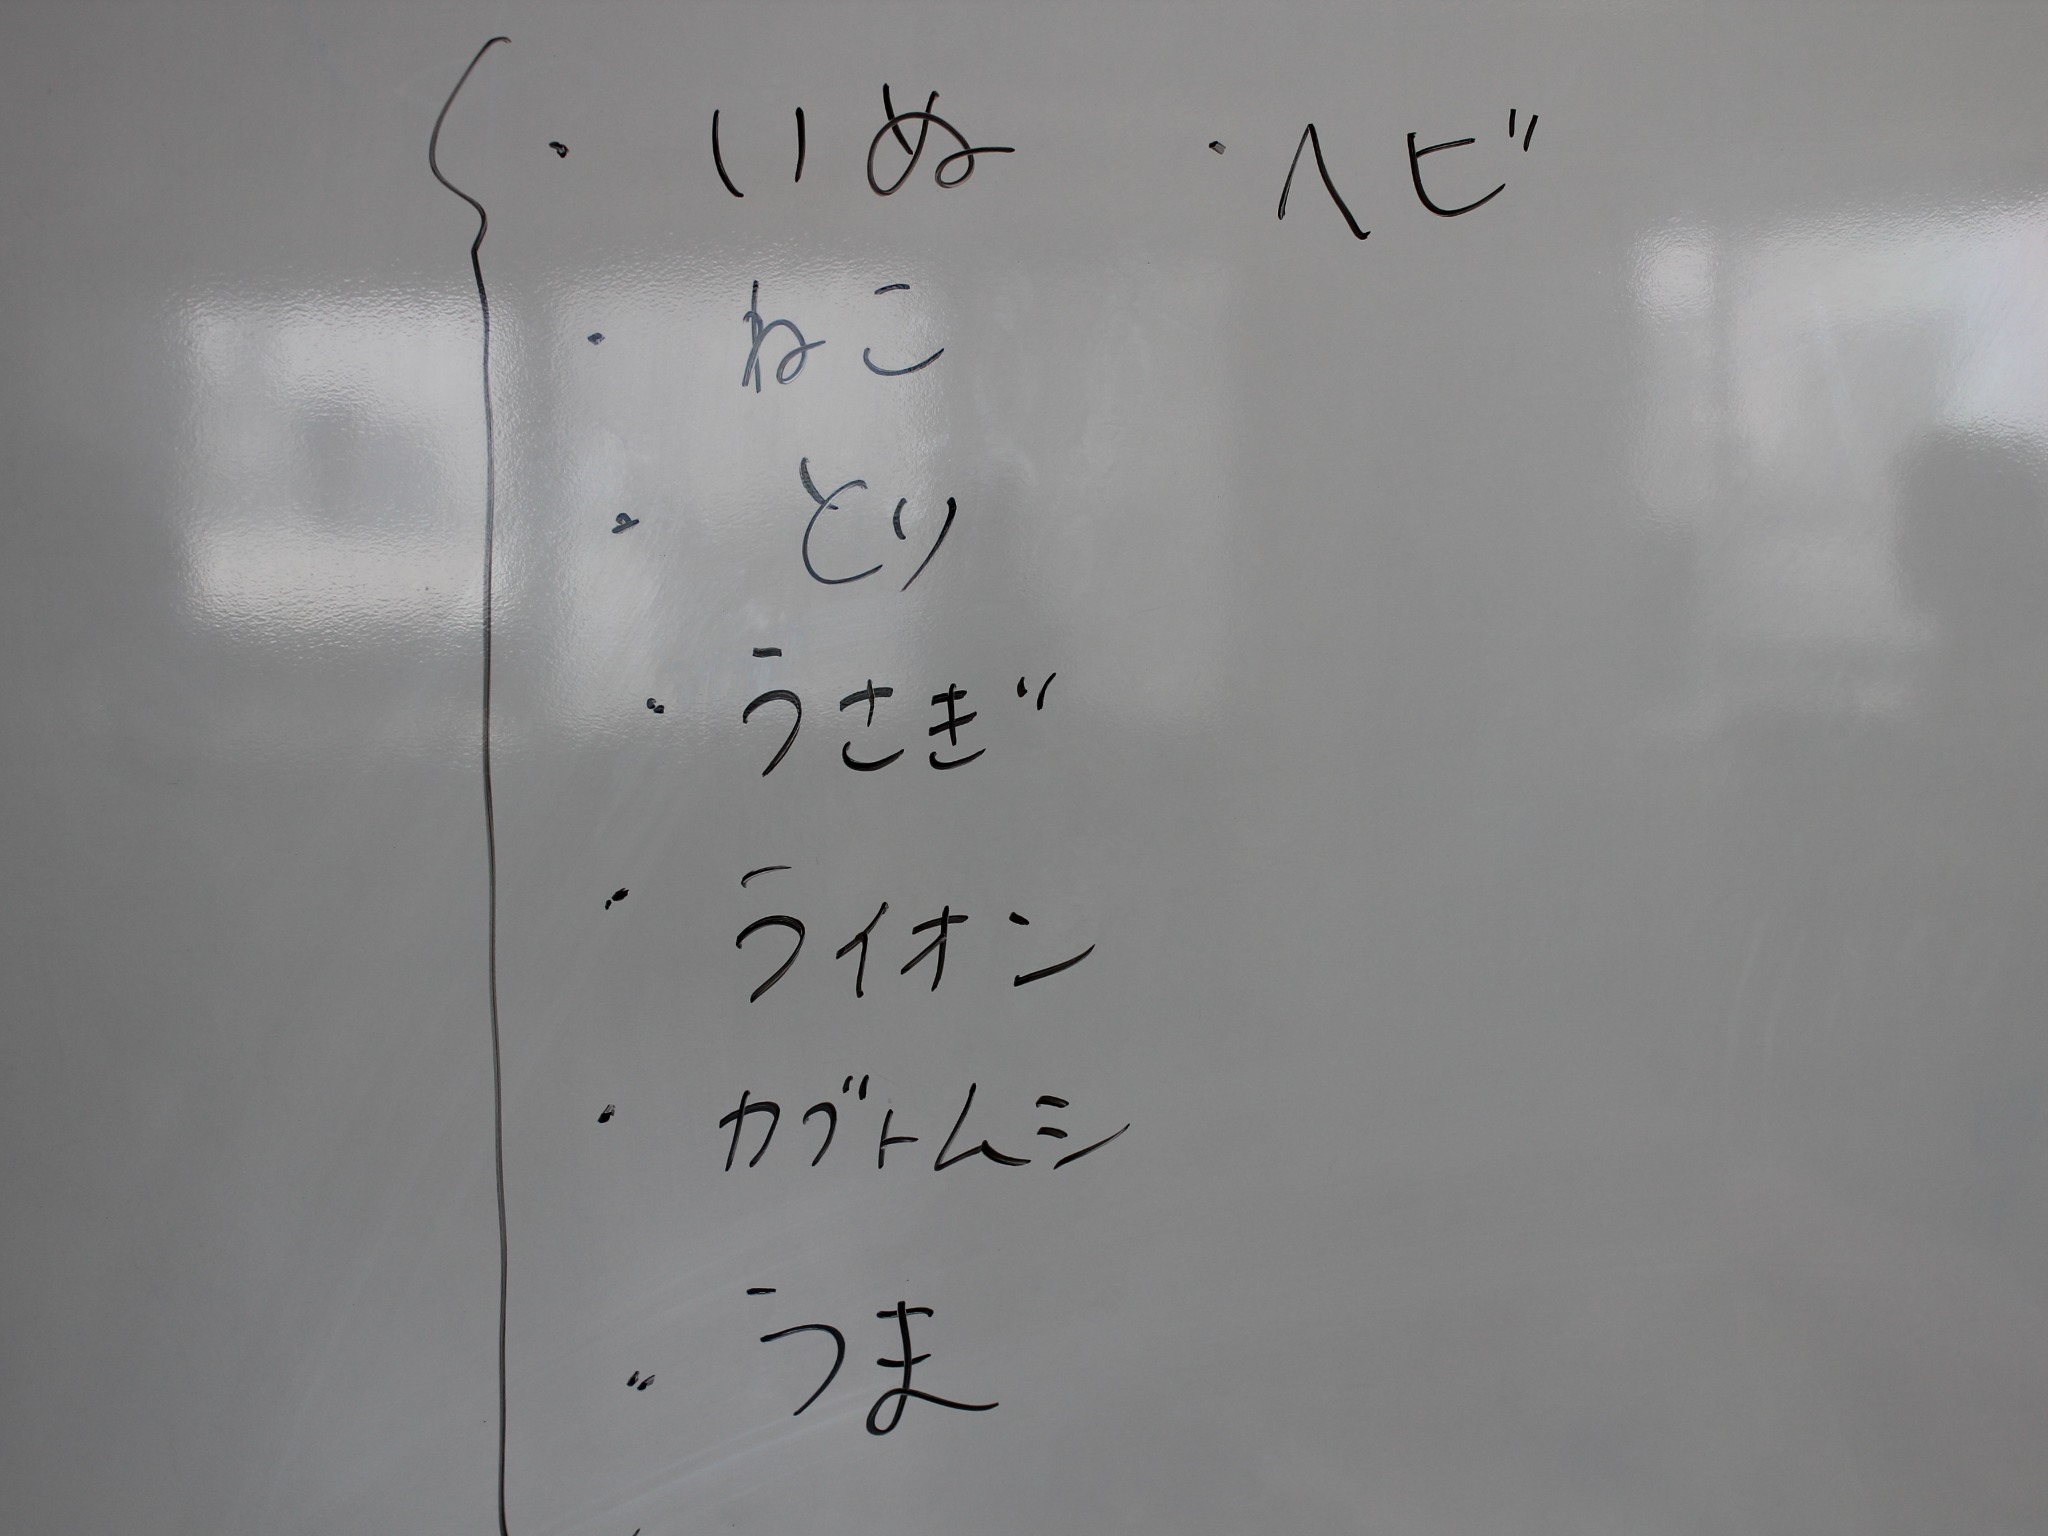 ・いぬ ・ヘビ
・ねこ
・とり
・うさぎ
・ライオン
・カブトムシ
・うま